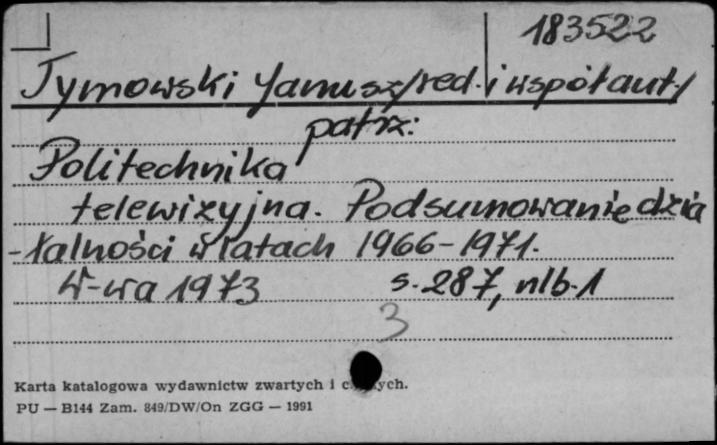 183522
Tymowski Janusz/red. i współaut/
patrz:
Politechnika
telewizyjna. Podsumowanie dzia
-łalności w latach 1966-1971.
W-wa 1973 s. 287, nlb. 1
3
Karta katalogowa wydawnictw zwartych i
PU — B144 Zam. 849/DW/On ZGG — 1991